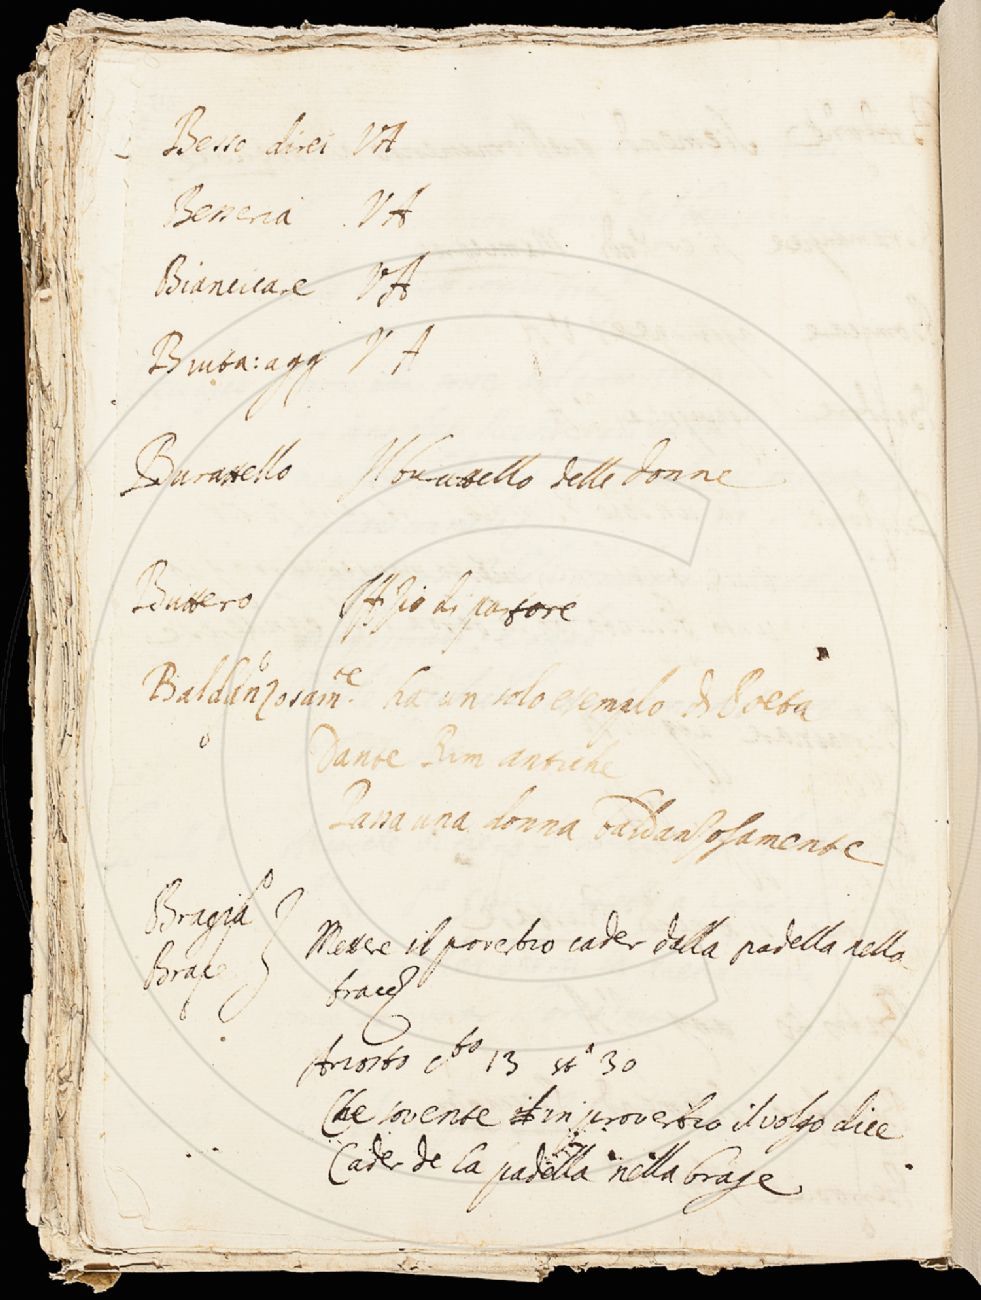 Besso direi VA
Besseria VA
Biancicare VA
Bruta: agg VA
Burattello Il burattello delle donne
Buttero Offizio di pastore
Baldanzosamte. ha un solo esempio di Poeta
Dante Rim antiche
Passa una donna baldanzosamente
Bragia
Brace Mettere il proverbio cader dalla padella nella
brace
Ariosto cto 13 sta 30
Che sovente in proverbio il volgo dice
Cader de la padella nella brage